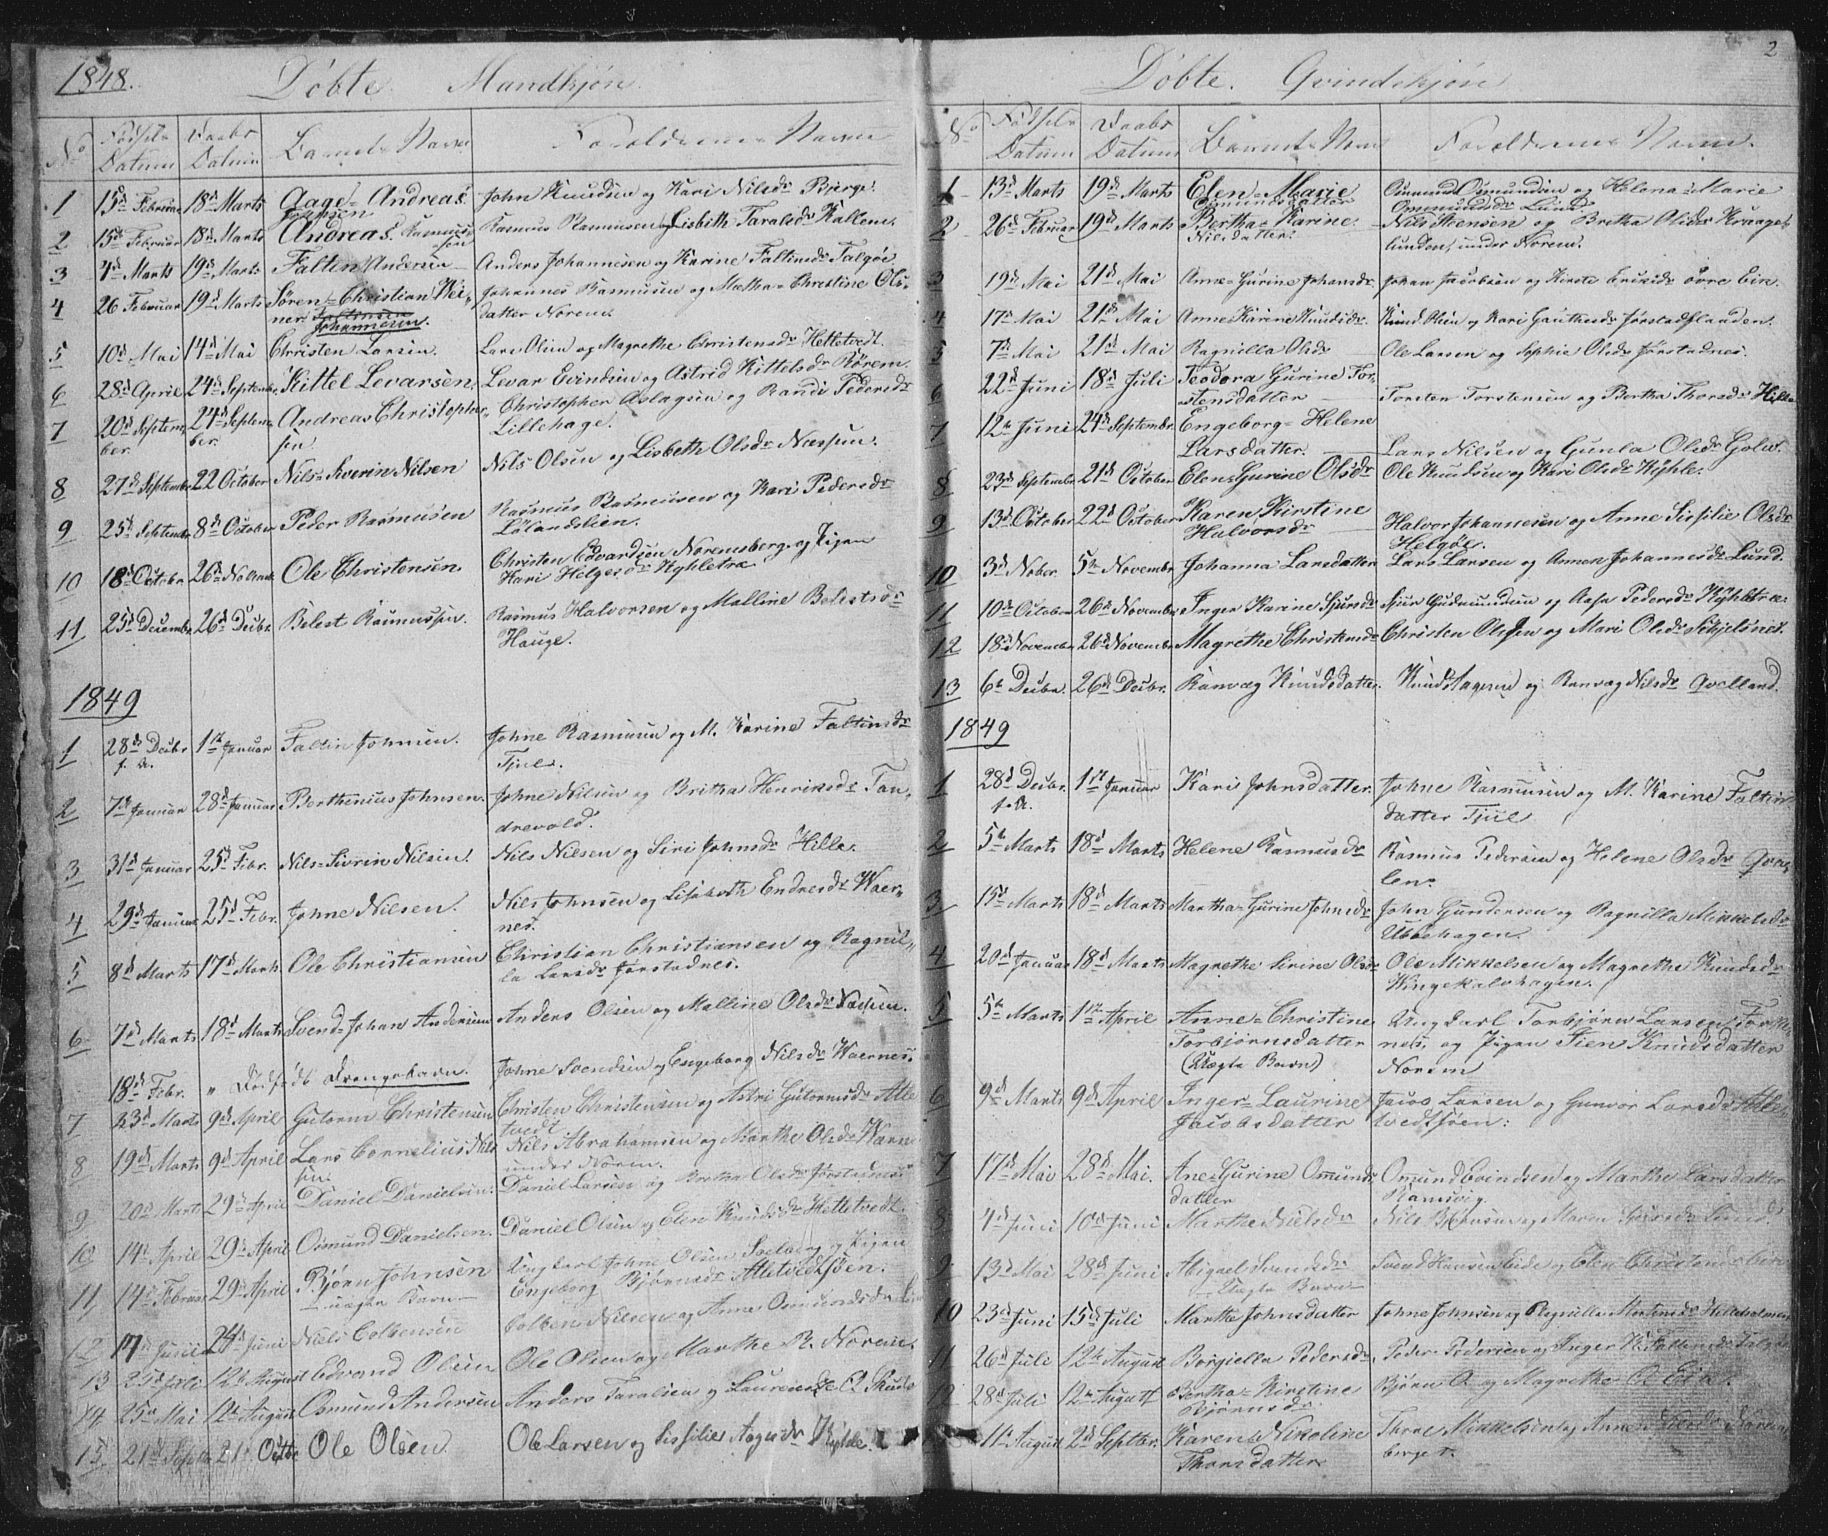 1848.
Døbte. Mandkjøn.
No Fødsels Datum Daabs Datum Barnets Navn Forældrenes Navne
1 15d Februar 18d Marts Aage Andreas Johnsen John Knudsen og Kari Nilsdr Bjerge.
2 15d Februar 18d Marts Andreas Rasmussen Rasmus Rasmussen og Lisbeth Taralsdr Kallem.
3 4d Marts 19d Marts Faltin Andersen Anders Johannesen og Karine Faltinsdr Talgøe
4 26 Februar 19d Marts Søren-Christian Wei- Johannes Rasmusen og Metha-Christine Ols-
ner Johannesen. datter Norem.
5 10d Mai 14d Mai Christen Larsen. Lars Olsen og Magrethe Christensdr Hettetvedt.
6 28d April 24d September Kittel Levarsen, Levar Evindsen og Astrid Kittelsdr Rørem.
7 20d Septem- 24d Septem- Andreas Christopher- Christopher Aslagsen og Randi Pedersdr
ber. ber. sen Lillehage.
8 27d Septembr 22 October Nils-Severin Nilsen Nils Olsen og Lisbeth Olsdr Næssen.
9 25d Septembr 8d October Peder Rasmusen Rasmus Rasmusen og Kari Pedersdr
Lølandslien.
10 18d Octobr 26d Novbr Ole Christensen Christen Edvardsen Noremsberg og Pigen
Kari Helgesdr Kyhletræ
11 25d Decembr 26d Decbr Belest Rasmussen. Rasmus Halvorsen og Malline Belestsdr
Hauge.
1849
1 28d Decbr 1st Januar Faltin Johnsen. Johne Rasmusen og M. Karine Faltinsdr
f. A. Tjul.
2 7de Januar 28d Januar Berthenius Johnsen. Johne Nilsen og Britha Henriksdr Tan-
drevold.
3 31d Januar 25d Febr. Nils-Sivrin Nilsen. Nils Nilsen og Siri Johnsdr Hille.
4 29d Januar 25d Febr. Johne Nilsen. Nils Johnsen og Lisabeth Endresdr Waer-
nes.
5 8d Marts 17d Marts Ole Christiansen Christian Christiansen og Ragnil-
la Larsdr Jørstadnes.
6 7d Marts 18d Marts Svend-Johan Andersen Anders Olsen og Malline Olsdr Næssen.
18d Febr. " Dødfødt Drengebarn. Johne Svendsen og Engeborg Nilsdr Waernes.
7 23d Marts 9d April Gutorm Christensen Christen Christensen og Astri Gutormsdr Atle
tvedt
8 19d Marts 9d April Lars Cornelius Nils Nils Abrahamsen og Marthe Olsdr Warn
sen. under Norem.
9 20d Marts 29d April Daniel Danielsen. Daniel Larsen og Bretha Olsdr Jørstadnes
10 14d April 29d April Osmund Danielsen. Daniel Olsen og Elen Knudsdr Hettetvedt.
11 14d Februar 29d April Bjørn Johnsen Ungkarl Johne Olsen Soelberg og Pigen
uægte Barn Engeborg Bjørnsdr Atletvedtsøen.
12 Juni 24d Juni Niels Colbensen Colben Nilsen og Anne Osmundsdr
13 25d Juli 12te August Edvand Olsen Ole Olsen og Marthe R. Norem.
14 25d Mai 12te August Osmund Andersen Anders Taralsen og
15 21d Septbr 21d Octbr Ole Olsen. Ole Larsen og Sissilie Aagesdr Kyhle.
2
Døbte. Qvindekjøn
No Fødsels Datum Daabs Datum Barnets Navn Forældrenes Navne.
1 13d Marts 19d Marts Elen-Marie Osmund Osmundsen og Helena-Marie
Osmundsdatter Ommundsdr Lund
2 26d Februar 19d Marts Bertha-Karine Nils Steensen og Bretha Olsdr Krangel-
Nilsdatter. lunden, under Norem.
3 19d Mai 21d Mai Anne-Gurine Johansdr Johan Jacobsen og Kirste Eriksdr øvre Eia.
4 17d Mai 21d Mai Anne Karine Knudsdr. Knud Olsen og Kari Gauthesdr Jørstadflanden.
5 7d Mai 21d Mai Ragnilla Olsdr Ole Larsen og Sophia Olsdr Jørstadnes.
6 22d Juni 18d Juli Teodora Gurine Tor- Torsten Torstensen og Bertha Thorsdr Hille
stensdatter
7 12te Juni 24d Septembr Engeborg-Helene
Larsdatter. Lars Nilsen og Gunla Olsdr Golvt.
8 23d Septembr 21d October Elen-Gurine Olsdr Ole Knudsen og Kari Olsdr Kyhle.
9 13d October 22d October Karen Kirstine Halvor Johannesen og Anne Sissilie Olsdr
Halvorsdr Helgøe.
10 3d Nober 5te Novembr Johanna Larsdatter Lars Larsen og Annen Johannesdr Lund.
11 10d October 26d Novembr Inger Karine Sjursdr Sjur Gudmundsen og Aasa Pedersdr Kyhletræ.
12 18d Novembr 26d Novembr Magrethe Christensdr Christen Olsen og Mari Olsdr Sekjelsnes.
13 6te Decbr. 26d Decbr. Ranvæg Knudsdatter. Knud Aagesen og Ranvæg Nilsdr Qvelland.
1849
1 28d Decbr. 1st Januar Kari Johnsdatter. Johne Rasmusen og M. Karine Faltins
f. A. datter Tjul
2 5te Marts 18d Marts Helene Rasmusdr Rasmus Pedersen og Helene Olsdr Qva-
len.
3 15d Marts 18d Marts Martha-Gurine Johnsdr John Gundersen og Ragnilla Mikkelsdr
Ubbehagen.
4 20d Januar 18d Marts Magrethe Serine Olsdr Ole Mikkelsen og Magretha Knudsdr
Wingekalvhagen.
5 5te Marts 1st April Anne-Christine Ungkarl Torbjørn Larsen
Torbjørnsdatter nes, og Pigen Sien Knudsdatter
(Uægte Barn) Norem
6 9de Marts 9d April Inger-Laurine Jacob Larsen og Gunvor Larsdr Atle
Jacobsdatter tvedtsøen:
7 17d Mai 28d Mai. Ane-Gurine Omunds Omund Evindsen og Marthe Larsdatter
datter Ramsvig.
8 4d Juni 10d Juni Marthe Nielsdr Nils og Maren
9 13d Mai 28d Juni Abigael Svendsdr Svend Hansen Eide og Elen Christensdr
Uægte Barn
10 23d Juni 15d Juli Marthe Johnsdatter Johne Johnsen og Ragnilla
11 26d Juli 12te August Borgiella Pedersdr. Peder Pedersen og Inger
12 28d Juli 12te August Bertha-Kirstine Bjørn O. og Magrethe O. Eia.
Bjørnsdr
11te August 2d Septbr. Karen Nikoline Thore Mikkelsen og Anne
Thorsdatter berget.